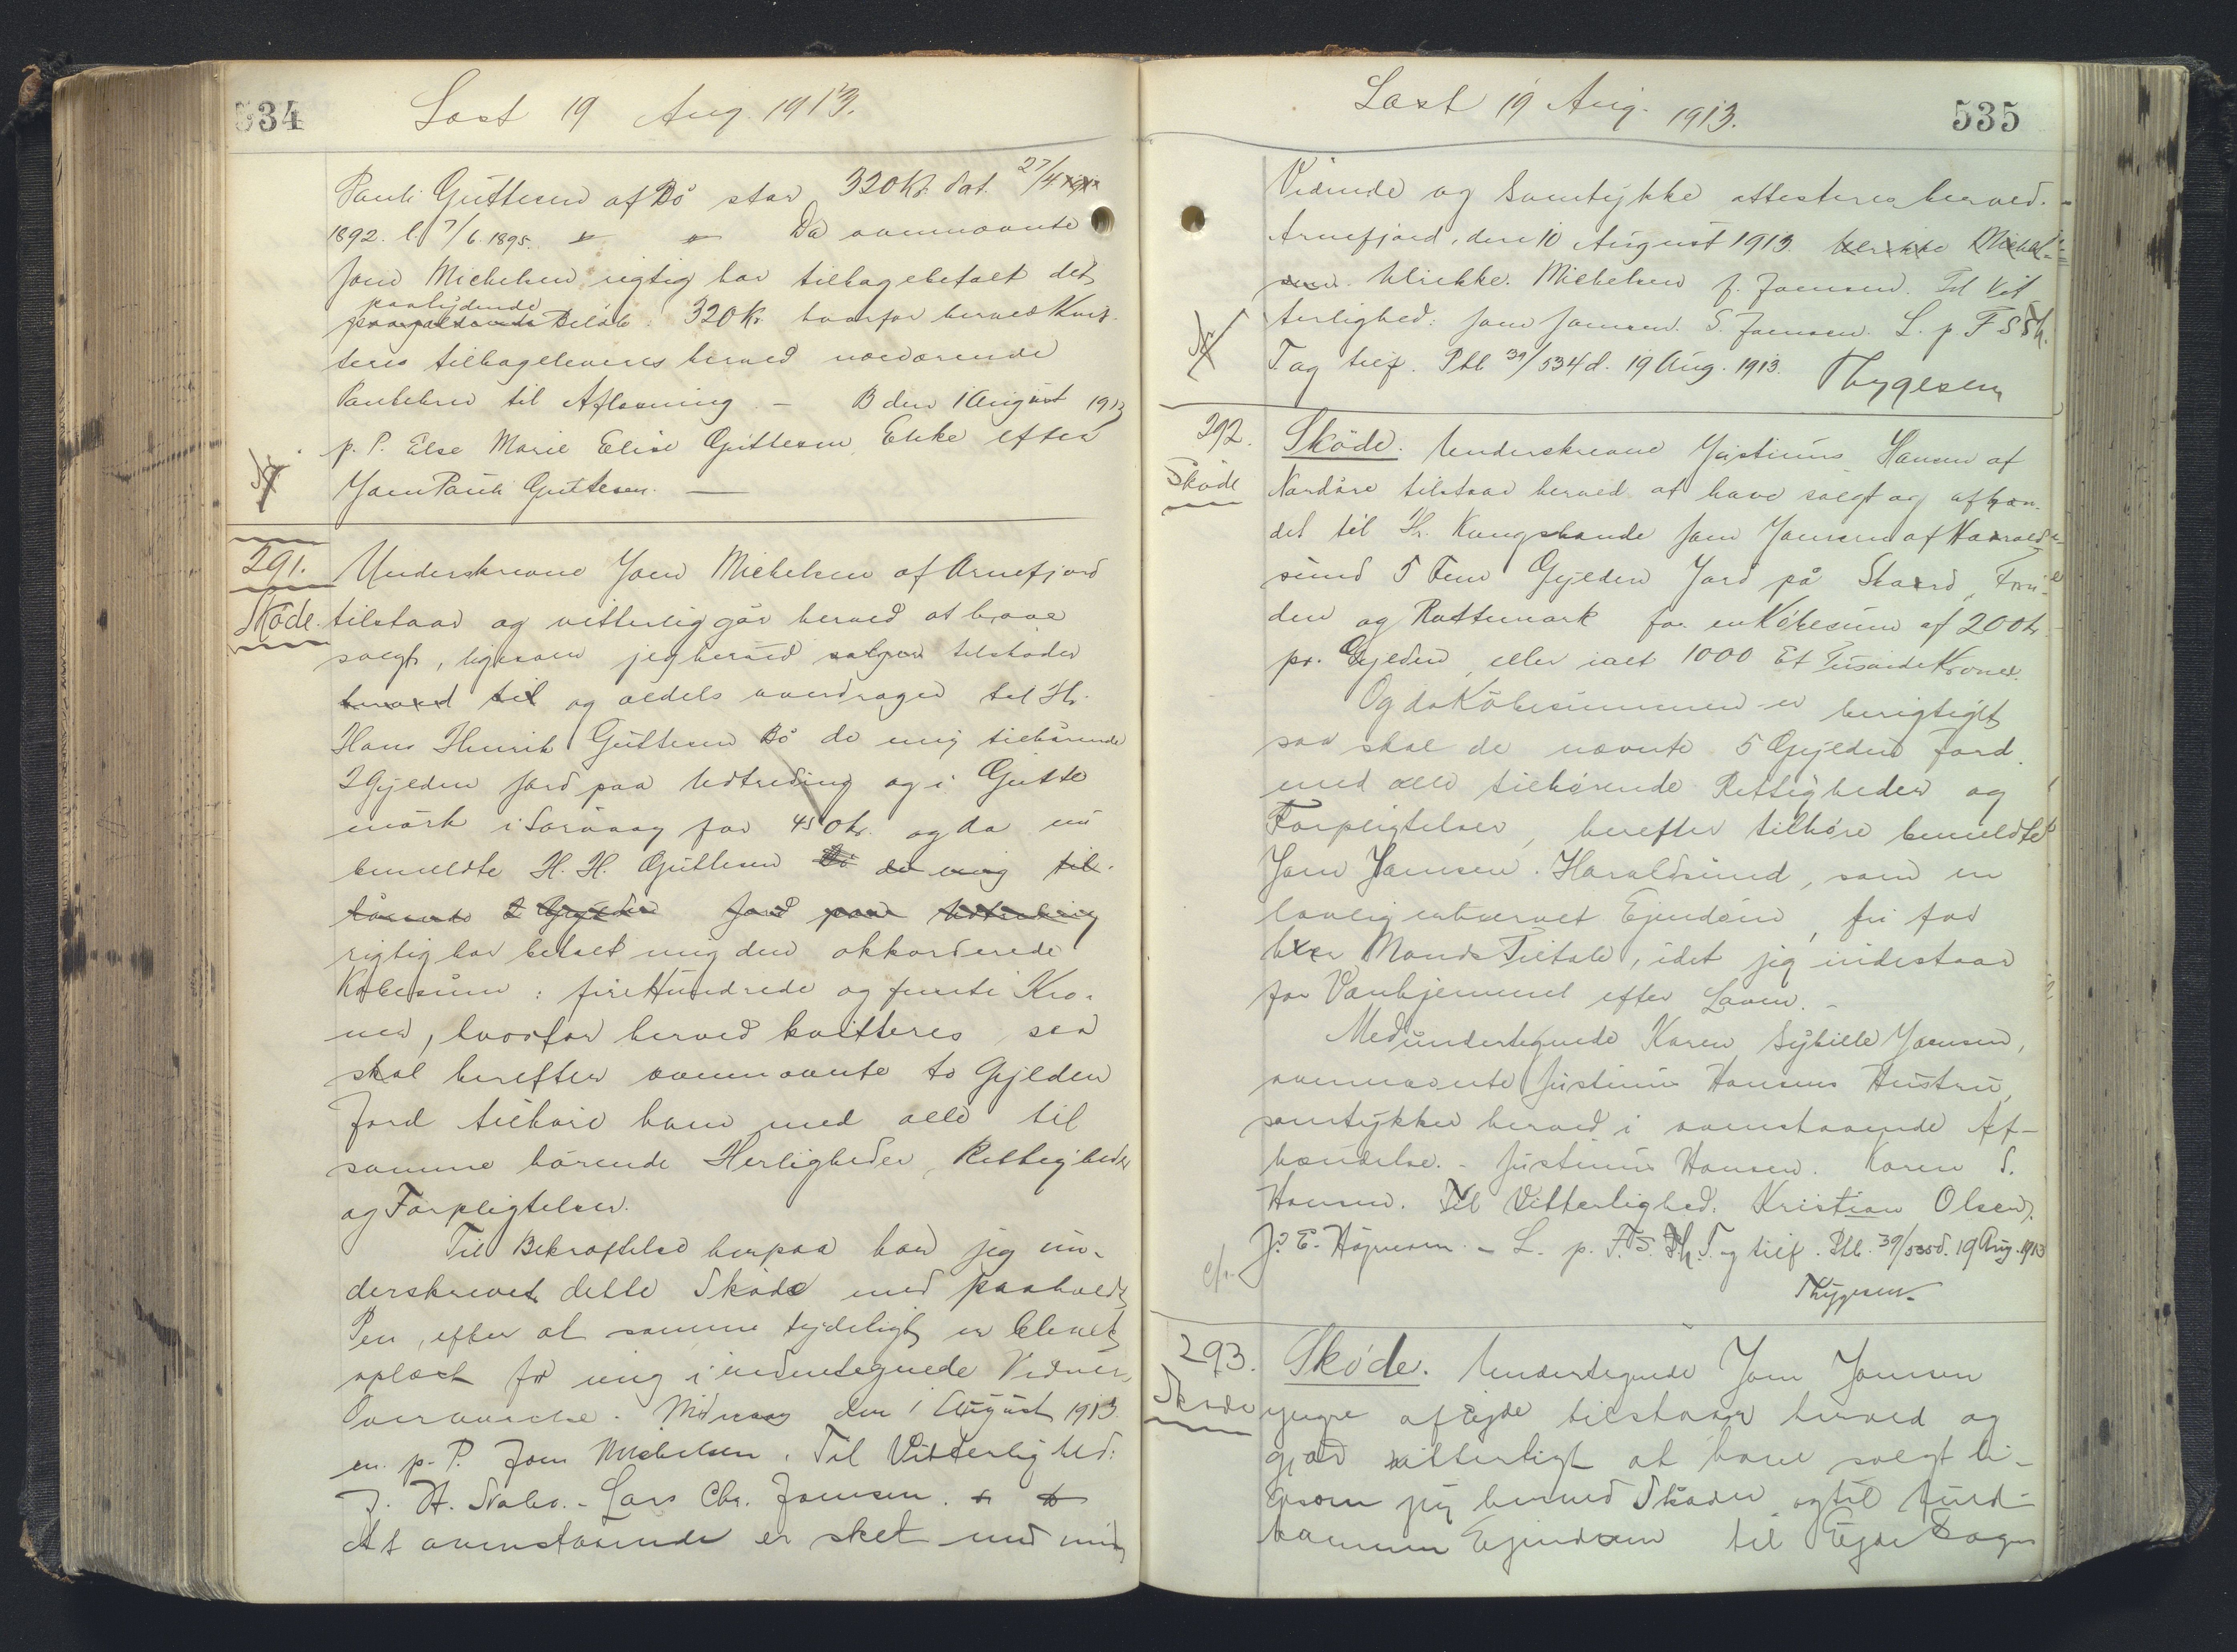 534
Læst 19 Aug. 1913.
Pauli Guttesen af Bö stor 320 Kr. dat. 27/4
1892. l. 7/6. 1895. Da ovennævnte
Joen Michelsen rigtig har tilbagebetalt det
paalydende
Beløb: 320 Kr. hvorfor herved Kvit-
teres tilbageleveres herved nærværende
Pantebrev til Aflæsning. — B den 1 August 1913
p. P. Else Marie Elise Guttesen, Enke efter
Joen Pauli Guttesen. —
291.
Sköde.
Underskrevne Joen Michelsen af Arnefjord
tilstaar og vitterliggör herved at have
solgt, ligesom jeg herved sælger tilskøder
herved til og aldels overdrager til Hr.
Hans Henrik Guttesen Bö de mig tilhörende
2 Gylden Jord paa Udtreding og i Gutte
mörk i Sörvaag for 450 kr. og da nu
bemeldte H. H. Guttesen Bö de mig til-
hörende 2 Gylden Jord paa Udtreding
rigtig har betalt mig den akkorderede
Købesum: fire Hundrede og femti Kro-
ner, hvorfor herved kvitteres, saa
skal herefter ovennævnte to Gylden
Jord tilhöre ham med alle til
samme hörende Herligheder, Rettigheder
og Forpligtelser.
Til Bekræftelse herpaa har jeg un-
derskrevet dette Sköde med paaholdt
Pen, efter at samme tydeligt er blevet
oplæst for mig i undertegnede Vidners
Overværelse. Midvaag den 1 August 1913.
m. p. P. Joen Michelsen. Til Vitterlighed:
J. H. Dalbo. - Lars Chr. Joensen.
At ovenstaaende er sket med min
Læst 19 Aug. 1913.
535
Vidende og Samtykke attesteres herved. -
Arnefjord, den 10 August 1913. Ulrikke Michel-
sen. Ulrikke Michelsen f. Joensen. Til Vit
terlighed: Joen Joensen. S. Joensen. L. p. F S Th.
T og tilf. Ptb 39/534 d. 19 Aug. 1913. Thygesen
292.
Sköde
Sköde. Underskrevne Justinus Hansen af
Nordöre tilstaar herved at have solgt og afhæn-
det til Hr. Kongsbonde Joen Joensen af Haralds-
sund 5 Fem Gylden Jord på Skaard, Frui-
den og Rattemark for en Købesum af 200 kr
pr. Gylden, eller ialt 1000 Et Tusinde Kroner.
Og da Köbesummen er berigtiget
saa skal de nævnte 5 Gylden Jord
med alle tilhörende Rettigheder og
Forpligtelser, herefter tilhöre bemeldte
Joen Joensen. Haraldsund, som en
lovlig erhvervet Ejendom, fri for
hver Mands Tiltale, idet jeg indestaar
for Vanhjemmel efter Loven. -
Medundertegnede Karen Sybille Joensen,
ovennævnte Justinus Hansens Hustru,
samtykker herved i ovenstaaende Af-
hændelse. - Justinus Hansen. Karen S.
Hansen. Til Vitterlighed: Kristian Olsen.
J. E. Höjnesen. - L. p. F. S. Th. T. og tilf. Ptb. 39/535 d. 19 Aug. 1913
Thygesen.
293.
Sköde
Sköde. Undertegnede Joen Joensen
yngre af Ejde tilstaar herved og
gjør vitterligt at have solgt li-
gesom jeg herved Sköder og til fuld-
kommen Ejendom til Ejde Sogns